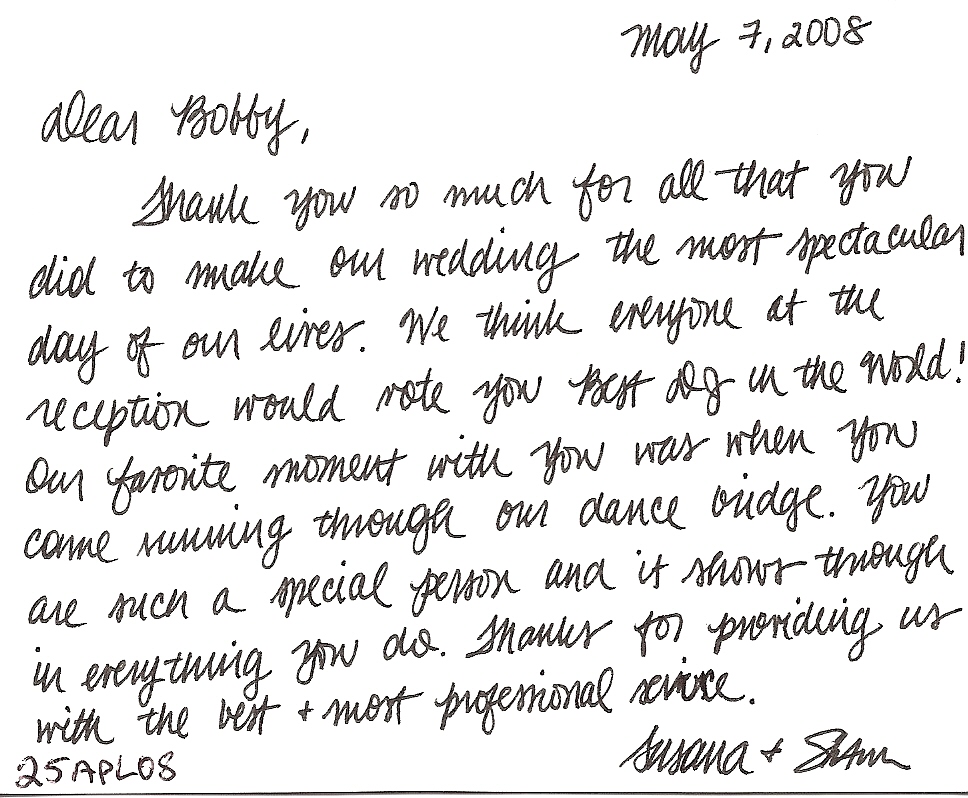 May 7, 2008
Dear Bobby,
Thank you so much for all that you
did to make our wedding the most spectacular
day of our lives. We think everyone at the
reception would vote you Best DJ in the World!
Our favorite moment with you was when you
came running through our dance bridge. You
are such a special person and it shows through
in everything you do. Thanks for providing us
with the best + most professional service.
Susana +
25APL08